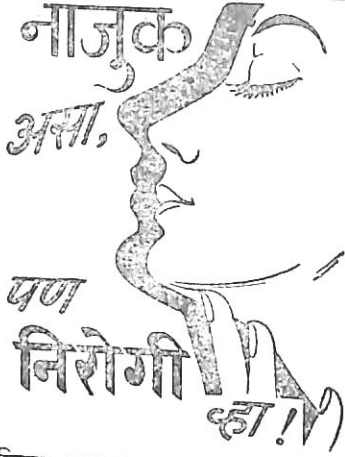 नाजुक
असा,
पण
निरोगी
व्हा!